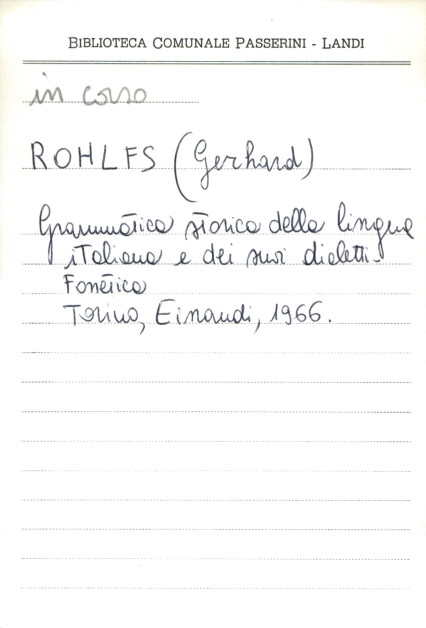 BIBLIOTECA COMUNALE PASSERINI - LANDI
in corso
ROHLFS (Gerhard)
Grammatica storica della lingua
italiana e dei suoi dialetti.
Fonetica
Torino, Einaudi, 1966.